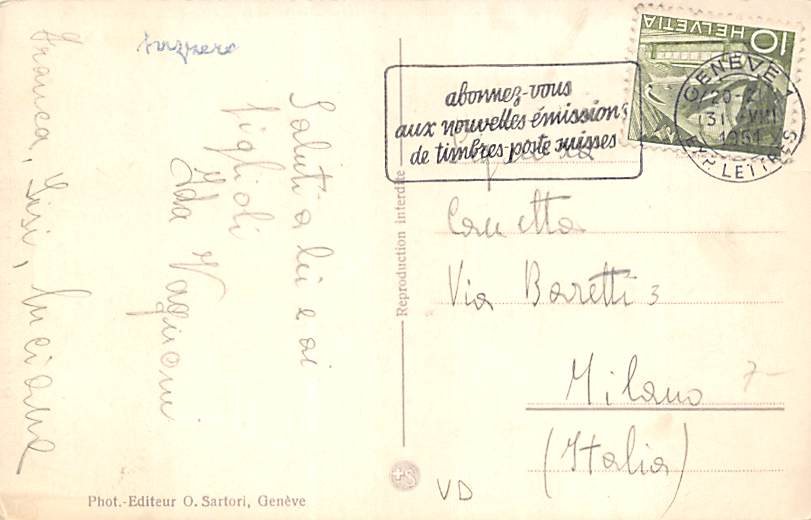 Svizzera
Saluti a lei e ai
figlioli
Ida Vagnoni
Franca, Lisi, Luciana
Phot.-Editeur O. Sartori, Genève
Reproduction interdite
abonnez-vous
aux nouvelles émissions
de timbres-poste suisses
HELVETIA 10
GENÈVE 1
20-2
31 VIII
1951
EXP. LETTRES
Canetta
Via Baretti 3
Milano
(Italia)
7-
VD
+S